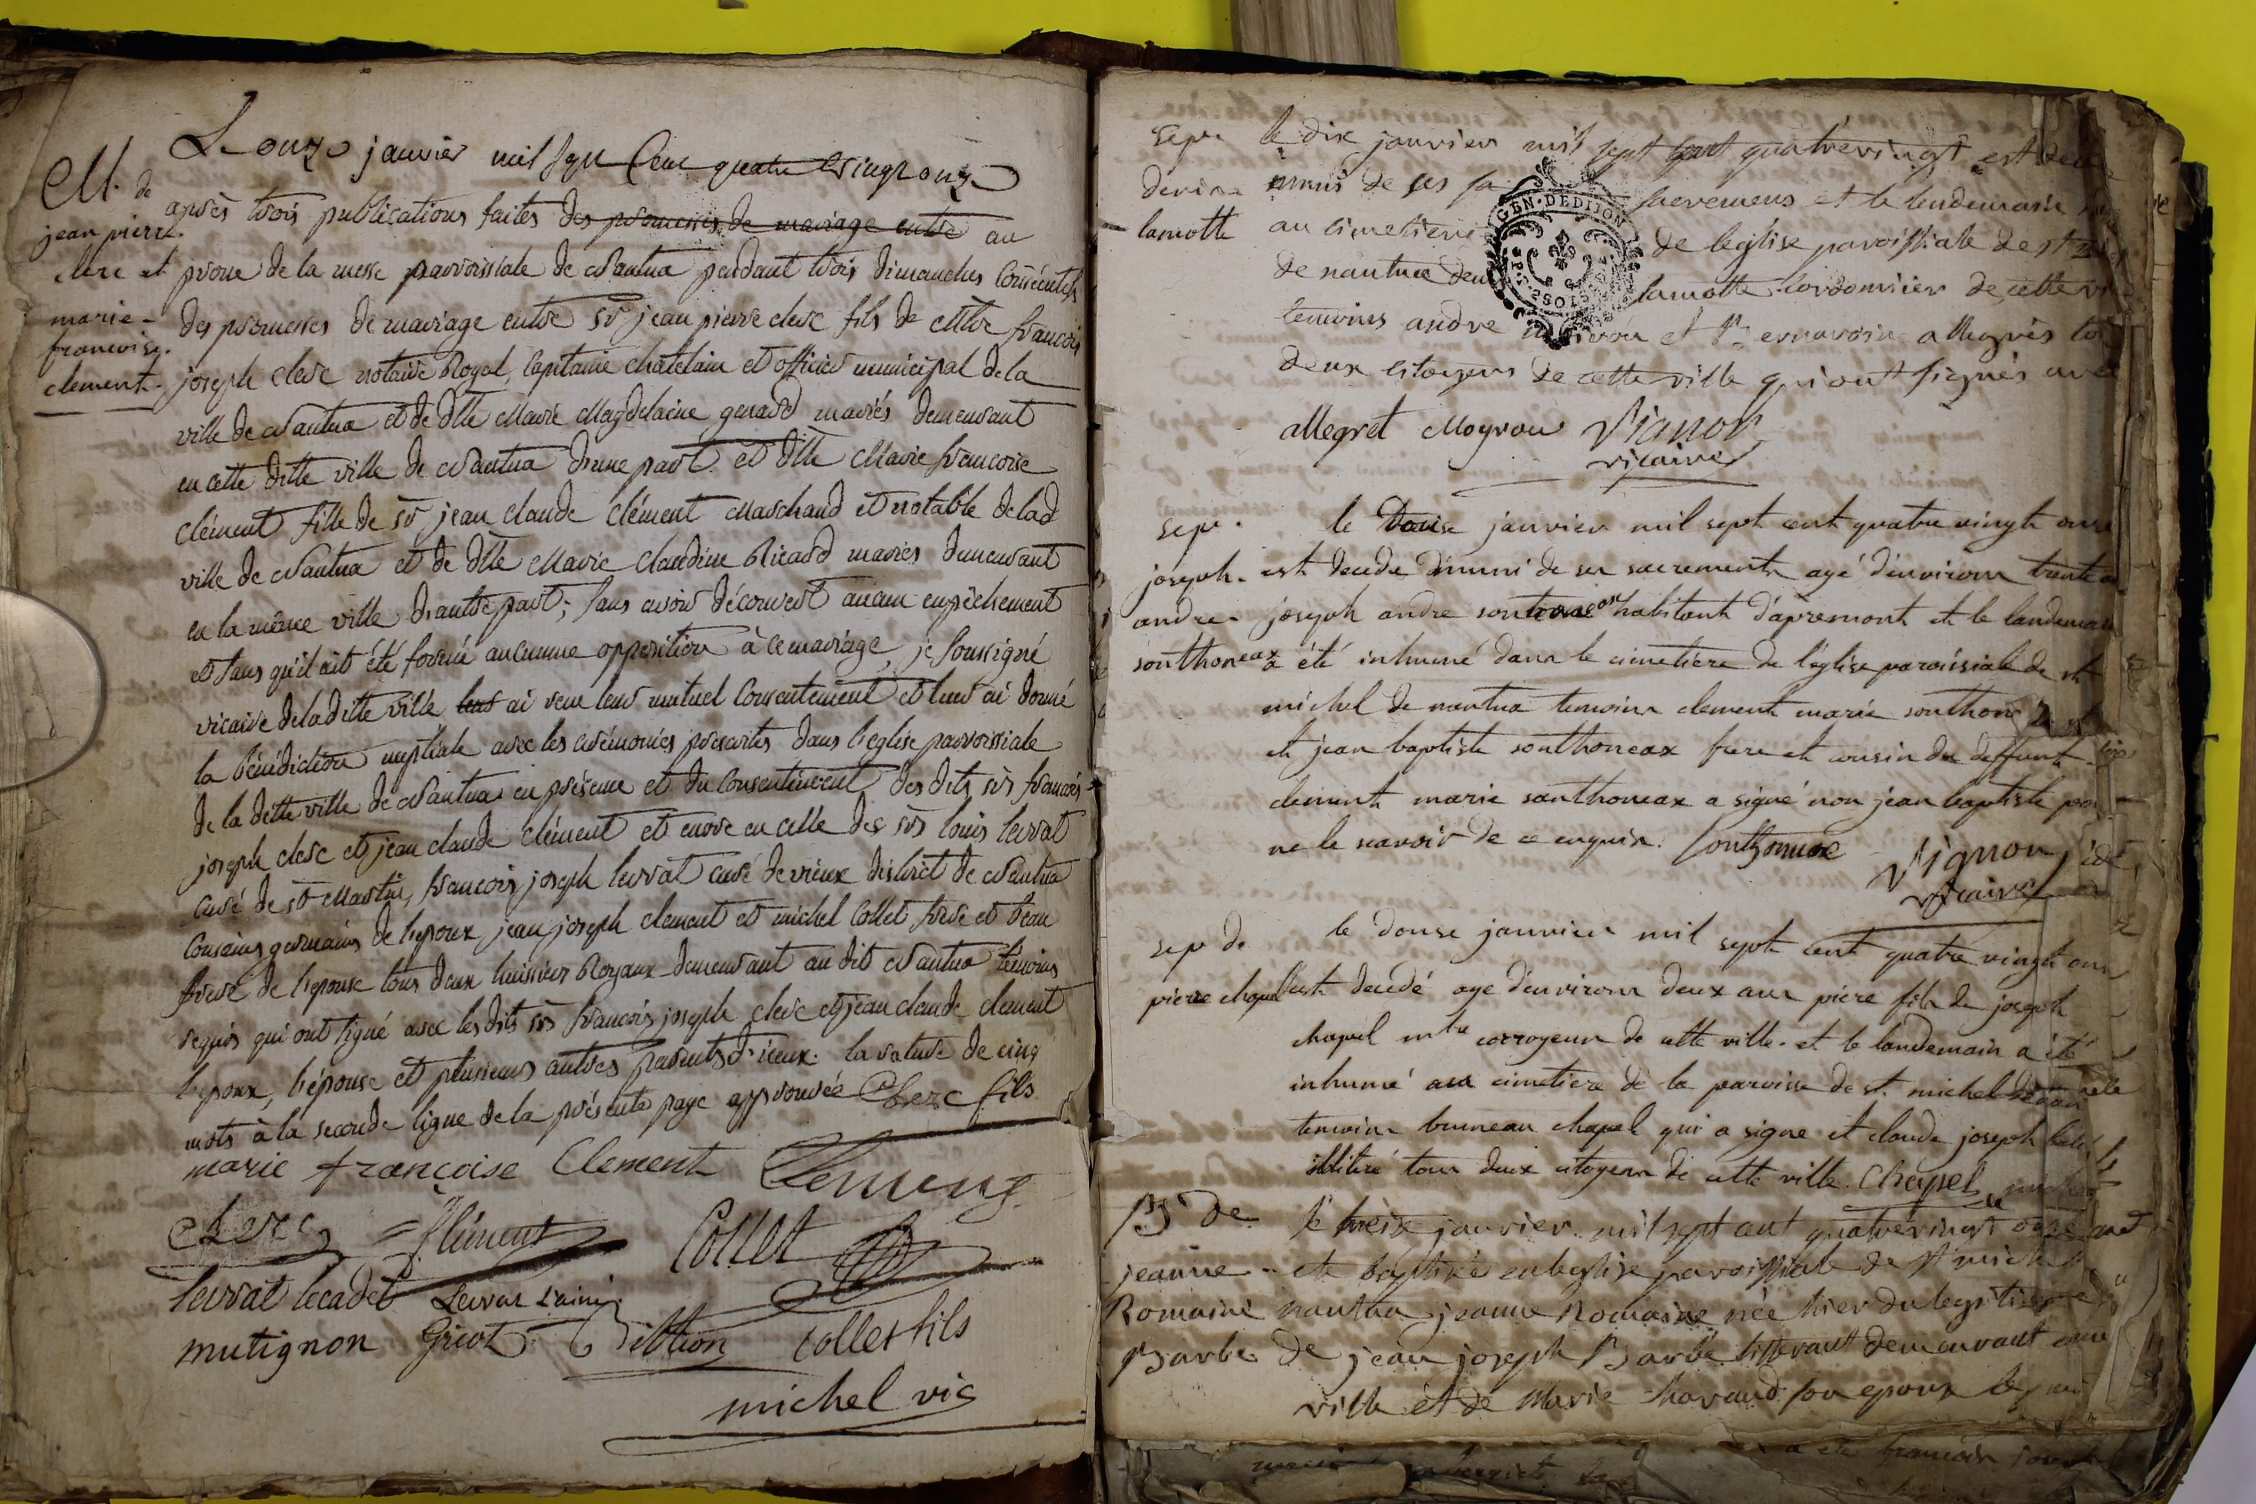 L onze janvier mil sept Cent quatre vingt onze
M. de
jean pierre
clerc et
marie-
francoise
clement.
après trois publications faites des promesses de mariage entre au
prone de la messe parroissiale de Nantua pendant trois dimanches Consécutifs
des promesses de mariage entre sr jean pierre clerc fils de Mtre francois
joseph clerc notaire Royal, Capitaine chatelain et officier municipal de la
ville de Nantua et de dlle Marie Magdelaine genard mariés demeurant
en cette ditte ville de Nantua d'une part et dlle Marie francoise
clément fille de sr jean claude clément Marchand et notable de lad
ville de Nantua et de dlle Marie Claudine Ricard mariés demeurant
en la même ville d'autre part; sans avoir découvert aucun empêchement
et sans qu'il ait été formé aucunne opposition à ce mariage, je soussigné
vicaire de la ditte ville leur ai recu leur mutuel Consentement et leur ai donné
la bénédiction nuptiale avec les cérémonies prescrites dans l'église parroissiale
de la ditte ville de Nantua en présence et du Consentement des dits srs francois
joseph clerc et jean claude clément et encore en celle des srs louis levrat
curé de st Martin, francois joseph levrat curé de vieux district de Nantua
Cousins germains de l'epoux jean joseph clement et michel Collet frere et beau
frere de l'epouse tous deux huissiers Royaux demeurant au dit Nantua témoins
requis qui ont signé avec les dits srs francois joseph clerc et jean claude clement
l'epoux, l'épouse et plusieurs autres parents d'iceux. la rature de cinq
mots à la seconde ligne de la présente page approuvée Clerc fils
marie françoise Clement Clement
Clerc Clément Collet
levrat le cadet Levrat L'ainé
mutignon Griot collet fils
michel vic
sepr.
lamotte
le dix janvier mil sept cent quatrevingt est
munis de ses sa crements et le lendemain
au cimetiere de leglise paroissiale de st
GEN. DE DIJON
de nantua lamotte cordonnier de cette
temoins andre et allegret
deux citoyens de cette ville qui ont signés avec
allegret Moyrou Vignon
vicaire
sepr.
joseph.
andre.
southoneax
le Douse janvier mil sept cent quatre vingt onse
est decede dmuni de ses sacrements agé d'environ trente
joseph andre southoneax habitant d'apremont et le landemain
a été inhumé dans le cimetière de l'église paroissiale de st
michel de nantua temoins clement marie southoneax
et jean baptiste southoneax frere et cousin du deffunt.
clement marie southoneax a signé non jean baptiste pour
ne le scavoir de ce enquis. Southoneax Vignon
vicaire
sepr de
pierre chapel
le douse janvier mil sept cent quatre vingt onse
est decedé agé d'environ deux ans piere fils de joseph
chapel mtre corroyeur de cette ville. et le landemain a été
inhumé au cimetiere de la paroisse de st. michel
temoins bruneau chapel qui a signé et claude joseph
illitéré tous deux citoyens de cette ville. Chapel
B de
jeanne
Romaine
Barbe
le treize janvier mil sept cent quatrevingt onze
ete baptisée en leglise paroissiale de st michel
nantua jeanne Romaine née hier du legitime
de jean joseph Barbe demeurant
ville et de Marie Chavaud son epouse